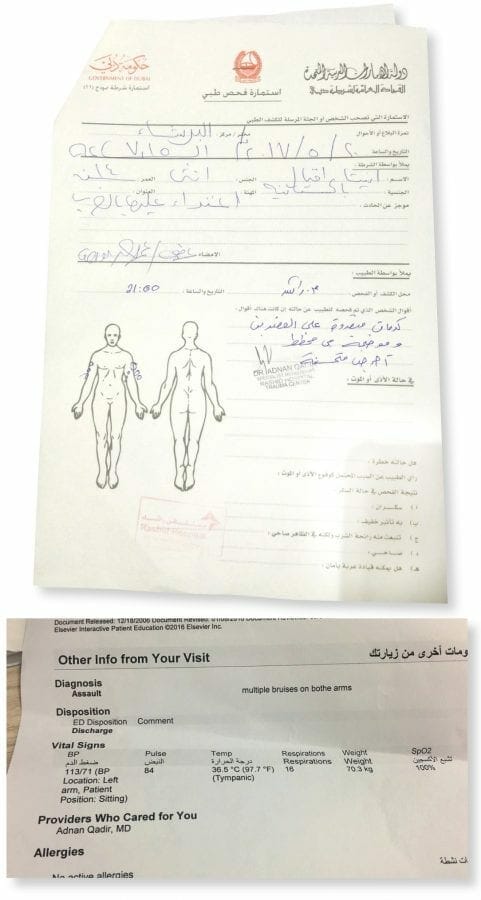 حكومة دبي
GOVERNMENT OF DUBAI
استمارة شرطة نموذج (١٦)
دولة الإمارات العربية المتحدة
القيادة العامة لشرطة دبي
استمارة فحص طبي
الاستمارة التي تصحب الشخص أو الجثة المرسلة للكشف الطبي
نمرة البلاغ أو الأحوال مخفر / مركز: البرشاء
التاريخ والساعة ٢٠١٧/٥/٢٠
يملأ بواسطة الشرطة:
الاسم: اقبال الجنس: انثى العمر:
الجنسية: باكستانية المهنة: العنوان:
موجز عن الحادث: اعتداء عليها بالضرب
الامضاء
يملأ بواسطة الطبيب:
محل الكشف أو الفحص: م. راشد التاريخ والساعة: 21:00
أقوال الشخص الذي تم فحصه للطبيب عن حالته إن كانت هناك أقوال:
كدمات متفرقة على العضدين
وموضحة مخطط
DR. ADNAN QADIR
RASHID HOSPITAL
TRAUMA CENTER
في حالة الأذى أو الموت:
هل حالته خطرة:
رأي الطبيب عن السبب المحتمل لوقوع الأذى أو الموت:
نتيجة الفحص في حالة السكر:
أ) سكران:
ب) به تأثير خفيف:
ج) تنبعث منه رائحة الشرب ولكنه في الظاهر صاحي:
د) صاحي:
هـ) هل يمكنه قيادة عربة بأمان:
Rashid Hospital
Document Released: 12/18/2006 Document Revised:
Elsevier Interactive Patient Education ©2016 Elsevier Inc.
Other Info from Your Visit
ومات أخرى من زيارتك
Diagnosis
Assault multiple bruises on bothe arms
Disposition
ED Disposition Comment
Discharge
Vital Signs
BP Pulse Temp Respirations Weight SpO2
ضغط الدم النبض درجة الحرارة Respirations Weight تشبع الأكسجين
113/71 (BP 84 36.5 °C (97.7 °F) 16 70.3 kg 100%
Location: Left (Tympanic)
arm, Patient
Position: Sitting)
Providers Who Cared for You
Adnan Qadir, MD
Allergies
ات نشطة
No active allergies